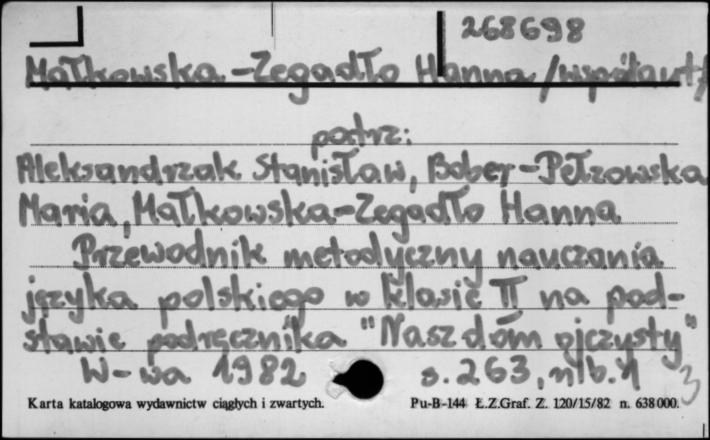 268698
Małkowska-Zegadło Hanna /współaut/
patrz:
Aleksandrzak Stanisław, Bober-Pełzowska
Maria, Małkowska-Zegadło Hanna
Przewodnik metodyczny nauczania
języka polskiego w klasie II na pod-
stawie podręcznika "Nasz dom ojczysty"
W-wa 1982 s. 263, nlb. 1
3
Karta katalogowa wydawnictw ciągłych i zwartych. Pu-B-144 Ł.Z.Graf. Z. 120/15/82 n. 638 000.